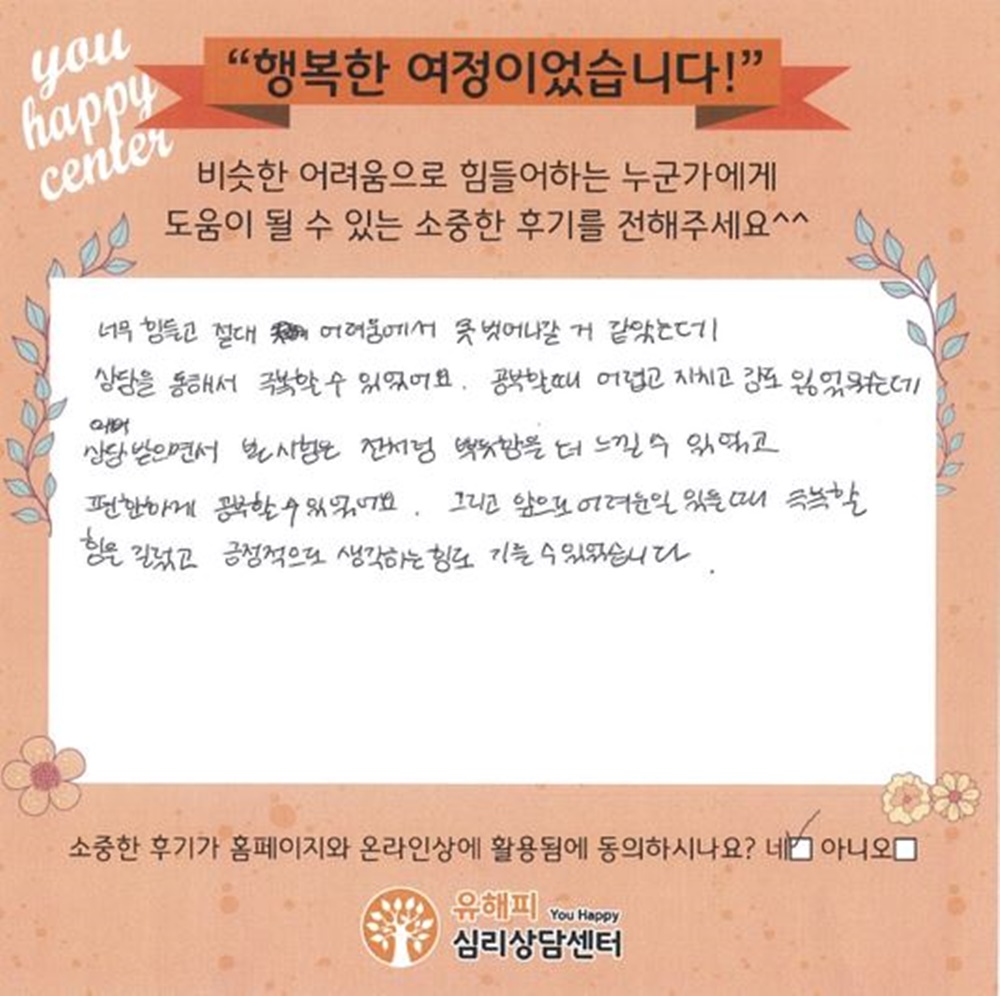 you
happy
center
“행복한 여정이었습니다!”
비슷한 어려움으로 힘들어하는 누군가에게
도움이 될 수 있는 소중한 후기를 전해주세요^^
너무 힘들고 절대 어려움에서 못 벗어나갈 거 같았는데
상담을 통해서 극복할 수 있었어요. 공부할때 어렵고 지치고 감도 잃었는데
상담 받으면서 본 시험은 전처럼 뿌듯함을 더 느낄 수 있었고
편안하게 공부할 수 있었어요. 그리고 앞으로 어려운일 있을 때 극복할
힘을 길렀고 긍정적으로 생각하는 힘도 기를 수 있었습니다.
소중한 후기가 홈페이지와 온라인상에 활용됨에 동의하시나요? 네 아니오
유해피 You Happy
심리상담센터